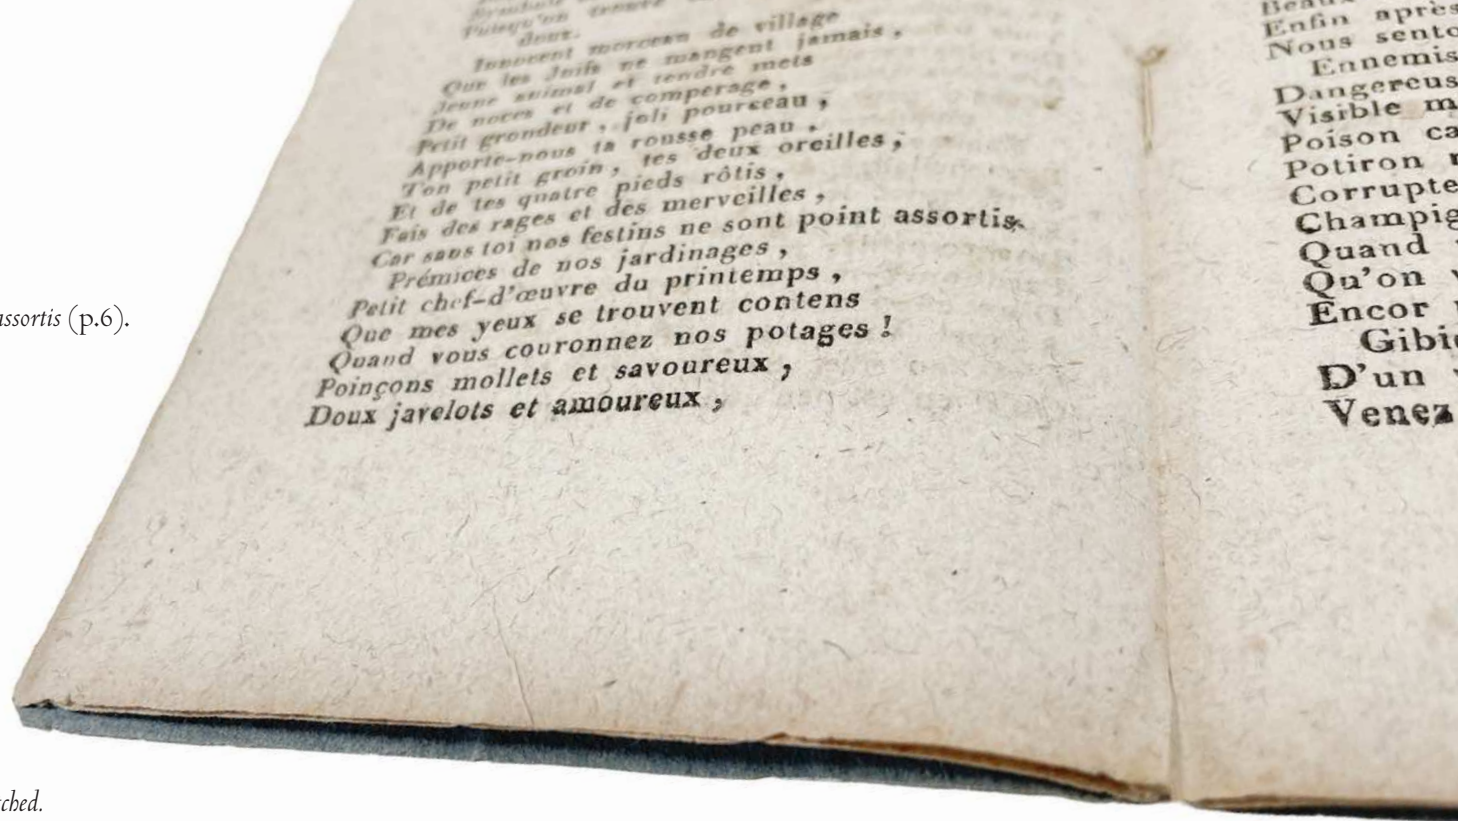 Puisqu'on trouve
doux.
Innocent morceau de village
Que les Juifs ne mangent jamais,
Jeune animal et tendre mets
De noces et de comperage,
Petit grondeur, joli pourceau,
Apporte-nous ta rousse peau,
Ton petit groin, tes deux oreilles,
Et de tes quatre pieds rôtis,
Fais des rages et des merveilles,
Car sans toi nos festins ne sont point assortis.
Prémices de nos jardinages,
Petit chef-d'œuvre du printemps,
Que mes yeux se trouvent contens
Quand vous couronnez nos potages!
Poinçons mollets et savoureux,
Doux javelots et amoureux,
Enfin après
Nous sento
Ennemis
Dangereus
Visible m
Poison ca
Potiron
Corrupte
Champig
Quand
Qu'on
Encor
Gibi
D'un
Venez
assortis (p.6).
ched.